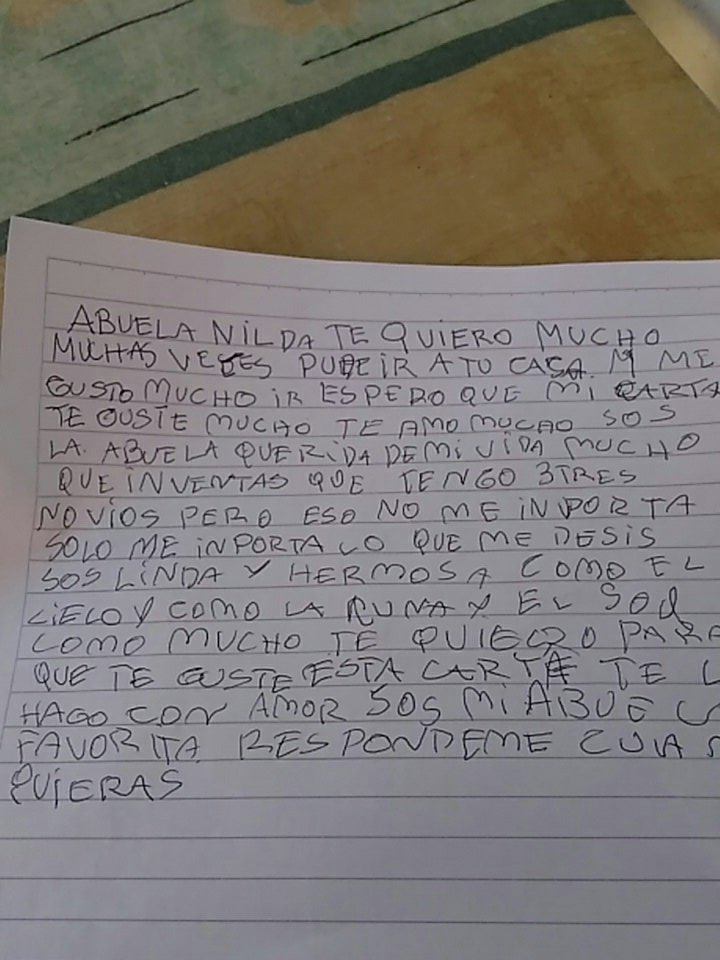 ABUELA NILDA TE QUIERO MUCHO
MUCHAS VECES PUDE IR A TU CASA. Y ME
GUSTO MUCHO IR ESPERO QUE MI CARTA
TE GUSTE MUCHO TE AMO MUCHO SOS
LA ABUELA QUERIDA DE MI VIDA MUCHO
QUE INVENTAS QUE TENGO 3 TRES
NOVIOS PERO ESO NO ME INPORTA
SOLO ME INPORTA LO QUE ME DESIS
SOS LINDA Y HERMOSA COMO EL
CIELO Y COMO LA LUNA Y EL SOL
COMO MUCHO TE QUIERO PARA
QUE TE GUSTE ESTA CARTA TE
HAGO CON AMOR SOS MI ABUE
FAVORITA RESPONDEME
QUIERAS